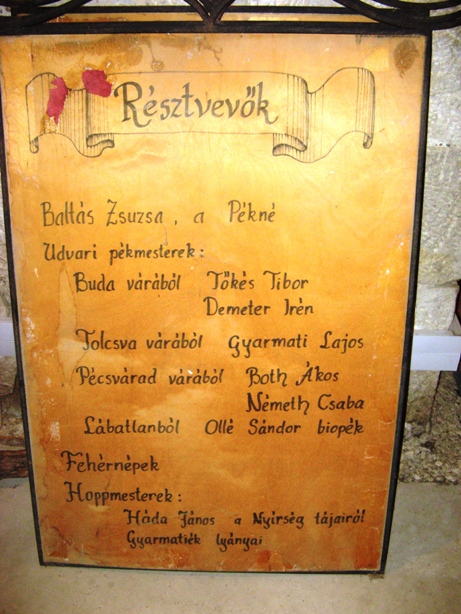 Résztvevők
Baltás Zsuzsa, a Pékné
Udvari pékmesterek:
Buda várából Tőkés Tibor
Demeter Irén
Tolcsva várából Gyarmati Lajos
Pécsvárad várából Both Ákos
Németh Csaba
Lábatlanból Ollé Sándor biopék
Fehérnépek
Hoppmesterek:
Háda János a Nyírség tájairól
Gyarmatiék lyányai